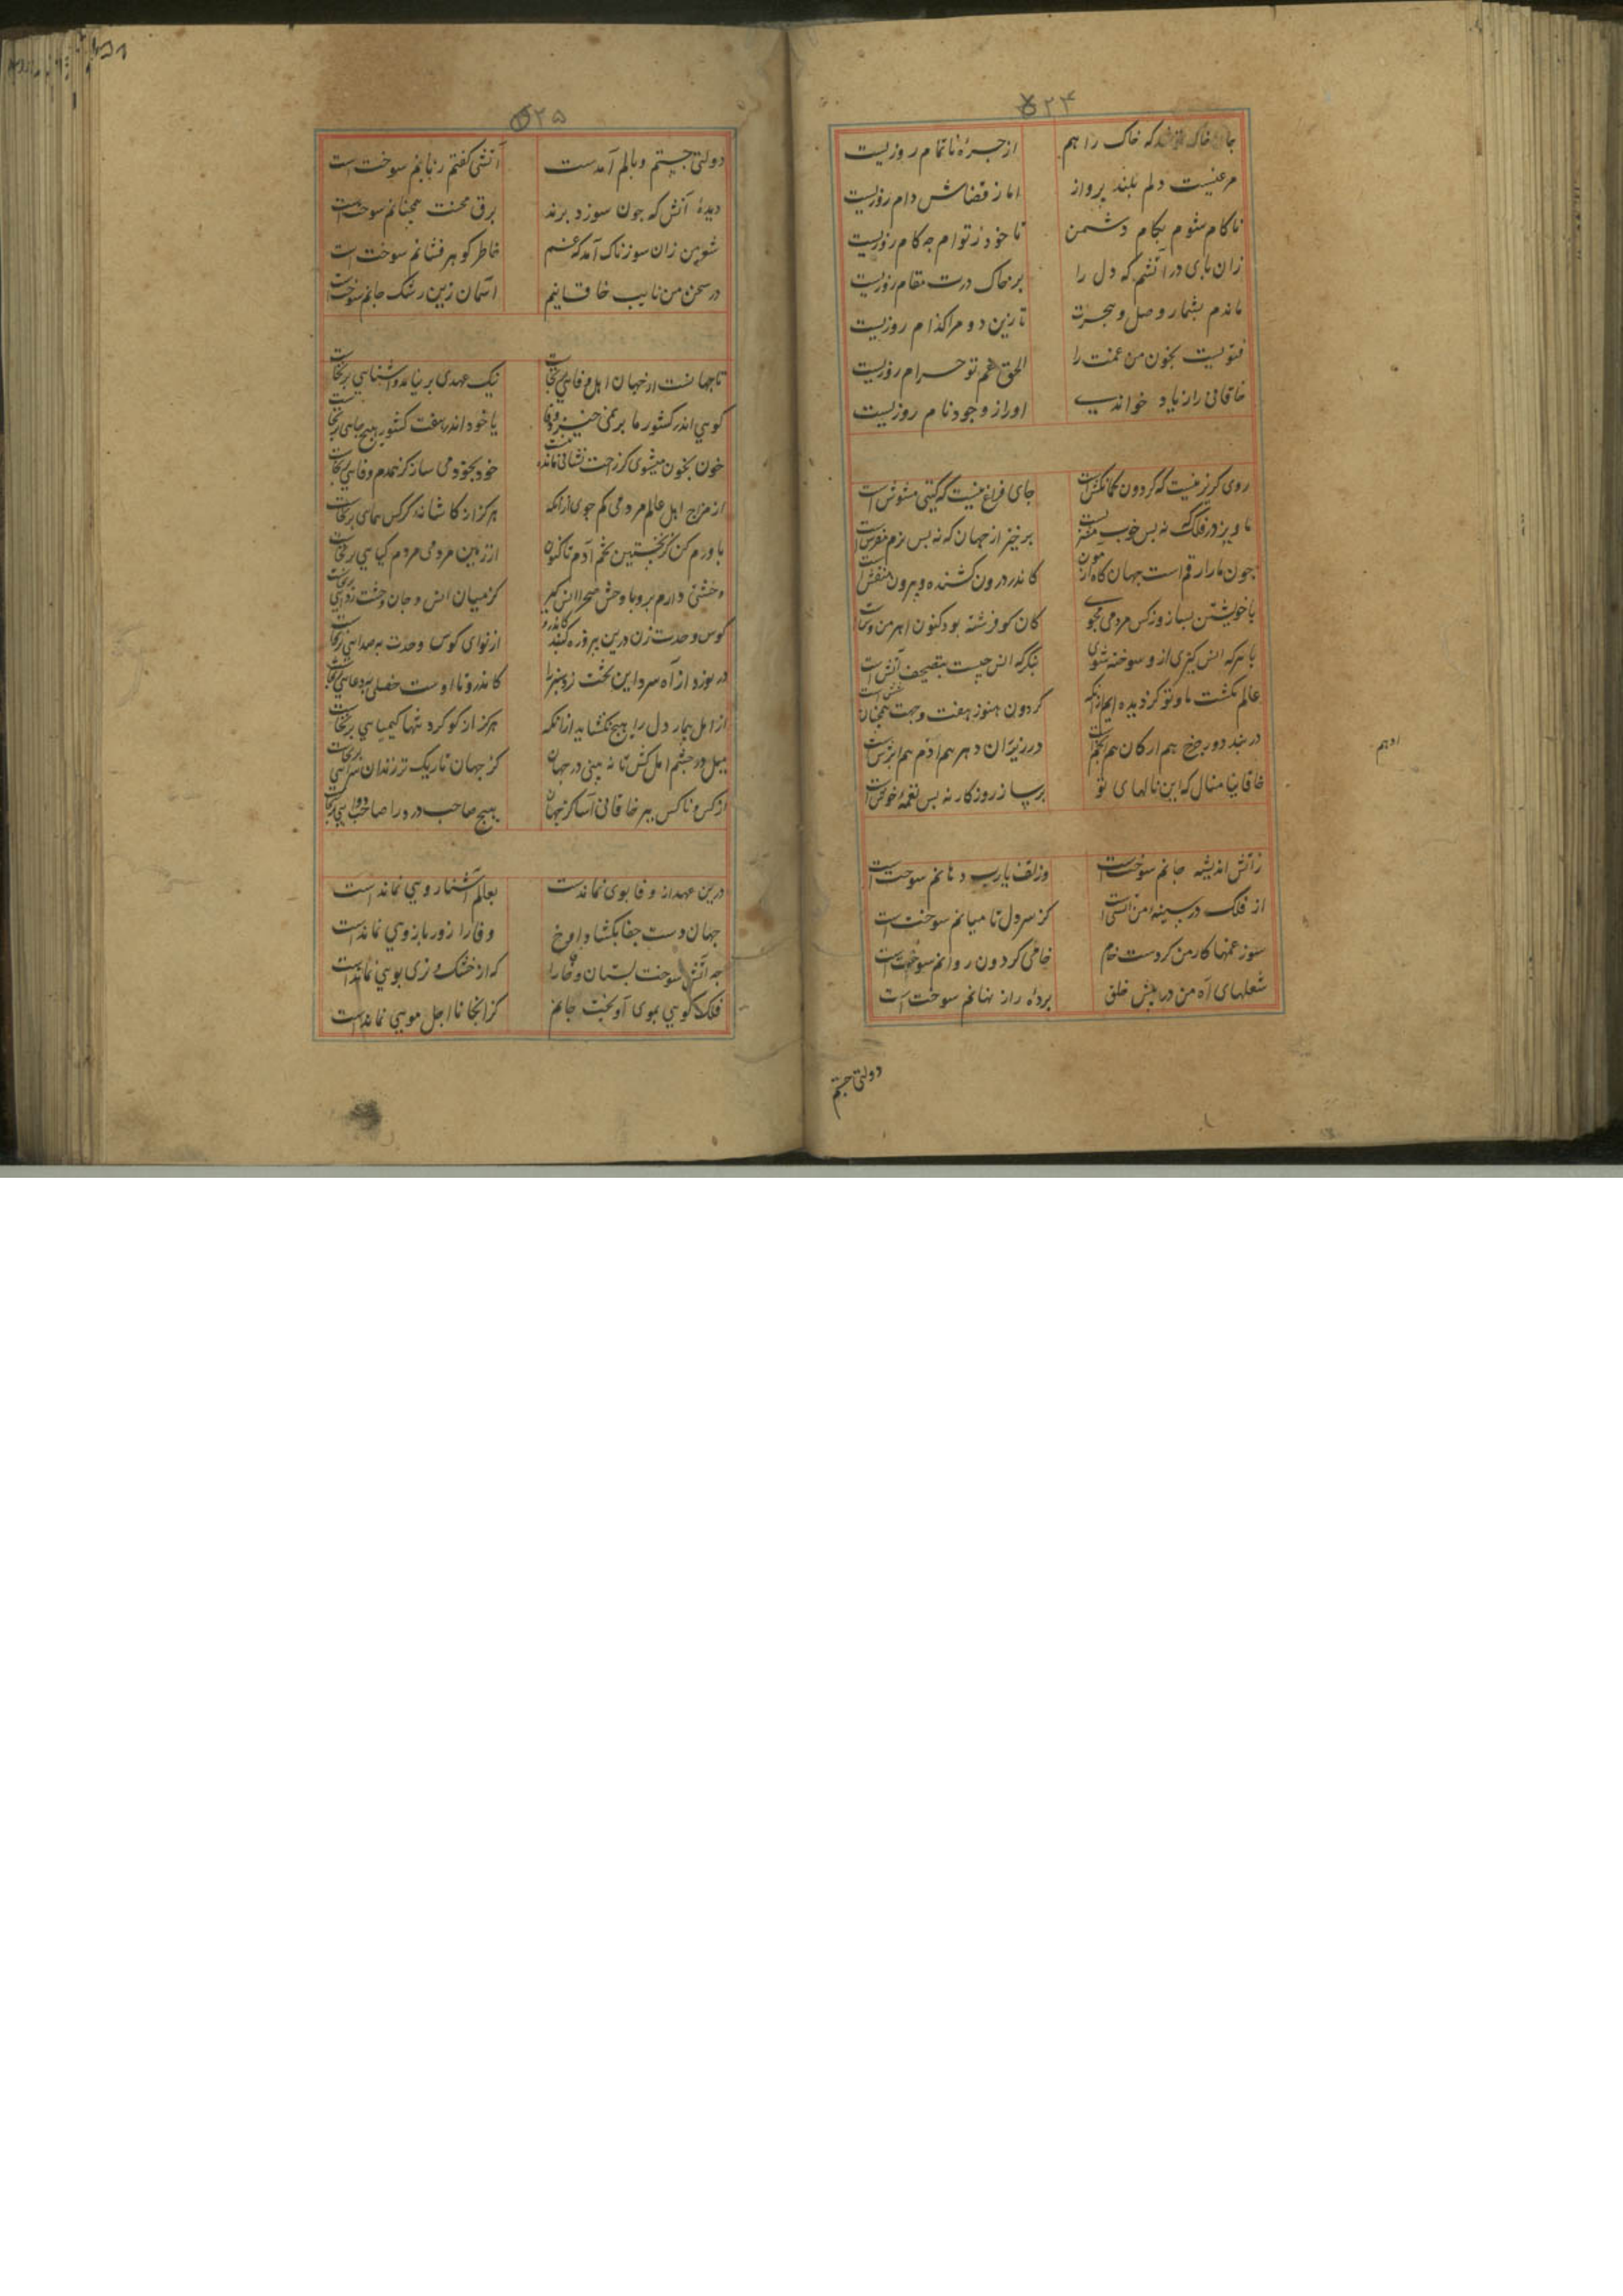 ۵۲۴
جان خاک که خاک را هم از جرعهٔ ناتمام روزیست
مرغیست دلم بلند پرواز اما ز قضاش دام روزیست
ناکام شوم بکام دشمن تا خود ز توام چه کام روزیست
زان پای در آتشم که دل را بر خاک درت مقام روزیست
ماندم بشمار وصل و هجرت تا زین دو مرا کدام روزیست
فتویست بخون من غمت را الحق غم تو حرام روزیست
خاقانی را ز یاد خواندی او را ز وجود نام روزیست
روی کریز نیست که گردون کمانکش است جای فراغ نیست که گیتی مشوش است
برخیز از جهان که نه بس بزم مفرش است
چون مار ارقم است جهان گاه آزمون کاندر درون کشنده و بیرون منقش است
با خویشتن بساز و ز کس مردمی مجوی کان کو فرشته بود کنون اهرمن وش است
با هر که انس گیری ازو سوخته شوی بنگر که انس چیست بتصحیف آتش است
عالم نگشت ما و تو گردیده ایم ازانکه گردون هنوز هفت و جهت همچنان شش است
در بند دور چرخ هم ارکان هم انجم است در زیر ران دهر هم ادهم هم ابرش است
خاقانیا منال که این نالهای تو برساز روزگار نه بس نغمهٔ خوش است
ز آتش اندیشه جانم سوخت است وز تف یارب دهانم سوخت است
از فلک در سینهٔ من آتشی است کز سر دل تا میانم سوخت است
سوز غمها کار من کردست خام خامی گردون روانم سوخت است
شعلهای آه من در پیش خلق پردهٔ راز نهانم سوخت است
دولتی جستم
ادهم
۵۲۵
دولتی جستم وبالم آمدست آتشی گفتم زبانم سوخت است
دیدهٔ آتش که چون سوزد پرند برق محنت همچنانم سوخت است
شعر من زان سوزناک آمد که غم خاطر گوهر فشانم سوخت است
در سخن من نایب خاقانیم آسمان زین رشک جانم سوخت است
تا جهانست از جهان اهل وفایی برنخاست نیک عهدی برنیامد و آشنایی برنخاست
گویی اندر کشور ما بر نمی خیزد وفا یا خود اندر هفت کشور هیچ جایی برنخاست
خون بخون میشوی کز راحت نشانی مانده نیست خود بخود می ساز کز همدم وفایی برنخاست
از مزاج اهل عالم مردمی کم جوی ازانکه هرگز از کاشانهٔ کرکس همایی برنخاست
باورم کن کز نخستین تخم آدم تا کنون از زمین مردمی مردم گیایی برنخاست
وحشتی داری برو با وحش صحرا انس گیر کز میان انس و جان وحشت زدایی برنخاست
کوس وحدت زن درین پیروزه گنبد کاندرو از نوای کوس وحدت به صدایی برنخاست
در نورد از آه سرد این تخت نرد سبز را کاندرو تا اوست خصلی بی دغایی برنخاست
از امل بیمار دل را هیچ نگشاید ازانکه هرگز از گوگرد تنها کیمیایی برنخاست
میل در چشم امل کش تا نه بینی در جهان کز جهان تاریک تر زندان سرایی برنخاست
از کس و ناکس ببر خاقانی آسا کز جهان هیچ صاحب درد را صاحب دوایی برنخاست
درین عهد از وفا بویی نماندست بعالم آشنا رویی نماند است
جهان دست جفا بگشاد آوخ وفا را زور بازویی نماندست
چه آتش سوخت بستان وفا را که از خشک و تری بویی نماند است
فلک گویی بمویی آویخت جانم کز آنجا تا اجل مویی نماند است